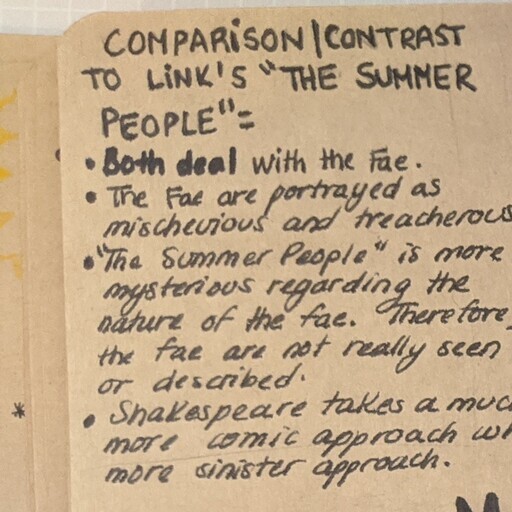 COMPARISON/CONTRAST
TO LINK'S "THE SUMMER
PEOPLE"=
• Both deal with the Fae.
• The Fae are portrayed as
mischevious and treacherous
• "The Summer People" is more
mysterious regarding the
nature of the fae. Therefore,
the fae are not really seen
or described.
* • Shakespeare takes a muc
more comic approach wh
more sinister approach.